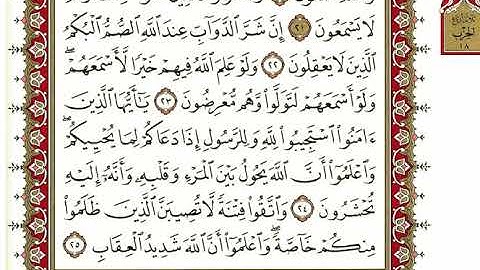 لَا يَسْمَعُونَ ٢١ إِنَّ شَرَّ ٱلدَّوَآبِّ عِندَ ٱللَّهِ ٱلصُّمُّ ٱلْبُكْمُ
ٱلَّذِينَ لَا يَعْقِلُونَ ٢٢ وَلَوْ عَلِمَ ٱللَّهُ فِيهِمْ خَيْرًا لَّأَسْمَعَهُمْ ۖ
وَلَوْ أَسْمَعَهُمْ لَتَوَلَّوا۟ وَّهُم مُّعْرِضُونَ ٢٣ يَـٰٓأَيُّهَا ٱلَّذِينَ
ءَامَنُوا۟ ٱسْتَجِيبُوا۟ لِلَّهِ وَلِلرَّسُولِ إِذَا دَعَاكُمْ لِمَا يُحْيِيكُمْ ۖ
وَٱعْلَمُوٓا۟ أَنَّ ٱللَّهَ يَحُولُ بَيْنَ ٱلْمَرْءِ وَقَلْبِهِۦ وَأَنَّهُۥٓ إِلَيْهِ
تُحْشَرُونَ ٢٤ وَٱتَّقُوا۟ فِتْنَةً لَّا تُصِيبَنَّ ٱلَّذِينَ ظَلَمُوا۟
مِنكُمْ خَآصَّةً ۖ وَٱعْلَمُوٓا۟ أَنَّ ٱللَّهَ شَدِيدُ ٱلْعِقَابِ ٢٥
الحزب
١٨